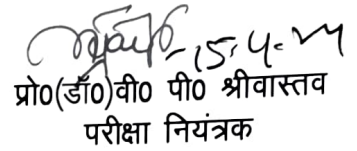 -15.4.24
प्रो0(डॉ0)वी0 पी0 श्रीवास्तव
परीक्षा नियंत्रक